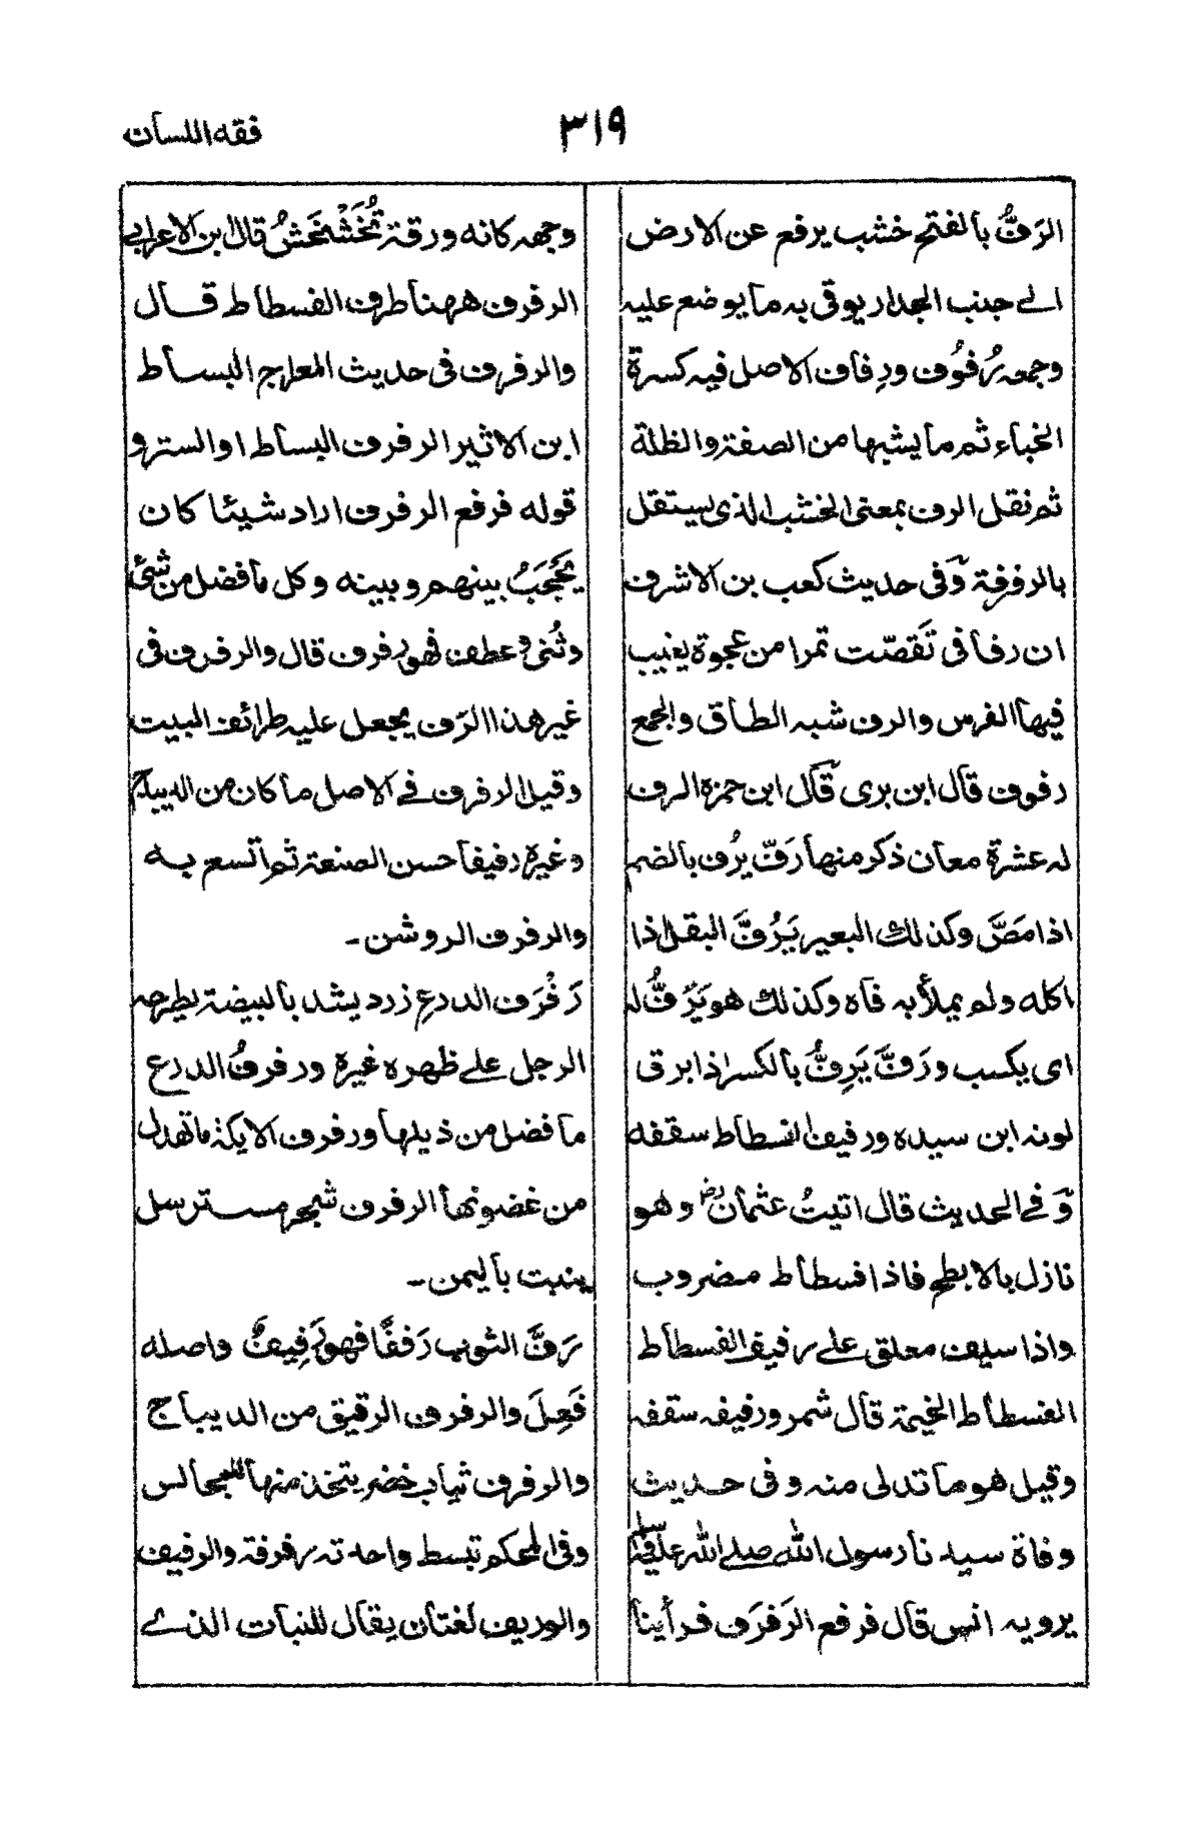 فقه اللسان
٣١٩
الرَفُّ بالفتح خشب يرفع عن الارض
الے جنب الجدار يوقى به ما يوضع عليه
وجمعه رُفُوف ورِفاف الاصل فيه كسرة
الخباء ثم ما يشبها من الصفة والظلة
ثم نقل الرف بمعنى الخشب الذى يستقل
بالرفرفة وفى حديث كعب بن الاشرف
ان رفا فى تَقصّت تمرا من عجوة يغيب
فيها الفرس والرف شبه الطاق والجمع
رفوف قال ابن برى قال ابن حمزه الرف
له عشرة معان ذكر منها رَفّ يرُف بالضم
اذا مَصَّ وكذلك البعير يَرُفَّ البقل اذا
اكله ولم يملأ به فاه وكذلك هو يَرُفُّ له
اى يكسب ورَفَّ يَرِفُّ بالكسر اذا برق
لونه ابن سيده ورفيف الفسطاط سقفه
وَفے الحديث قال اتيتُ عثمانؓ وهو
نازل بالابطح فاذا فسطاط مضروب
واذا سيف معلق علے رفيف الفسطاط
الفسطاط الخيمة قال شمر ورفيفه سقفه
وقيل هو ما تدلى منه وفى حديث
وفاة سيدنا رسول الله صلے الله عليه وسلم
يرويه انس قال فرفع الرَفرَف فرأينا
وجهه كانه ورقة تُخَشْخَشُ قال ابن الاعرابى
الرفرف ههنا طرف الفسطاط قال
والرفرف فى حديث المعراج البساط
ابن الاثير الرفرف البساط او الستر و
قوله فرفع الرفرف اراد شيئا كان
يَحجَبُ بينهم وبينه وكل ما فضل من شئ
وثُنى وعطف فهو رفرف قال والرفرف فى
غير هذا الرَف يجعل عليه طرائف البيت
وقيل الرفرف فے الاصل ما كان من الديباج
وغيره رفيفا حسن الصنعة ثم اتسع به
والرفرف الروشن۔
رَفْرَف الدرع زرد يشد بالبيضة يطرحه
الرجل علے ظهره غيره ورفرفُ الدرع
ما فضل من ذيلها ورفرف الايكة ما تهدل
من غضونها الرفرف شجر مسترسل
ينبت باليمن۔
رَفَّ الثوب رَففًا فهو رَفِيفٌ واصله
فَعِلَ والرفرف الرقيق من الديباج
والرفرف ثياب خضر يتخذ منها للمجالس
وفى المحكم تبسط واحدته رفرفة والرفيف
والوريف لغتان يقال للنبات الذے